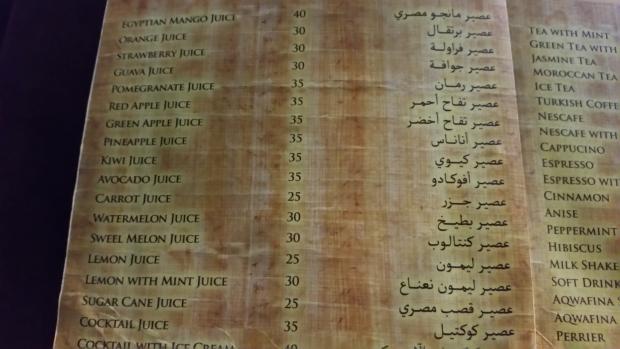 EGYPTIAN MANGO JUICE 40 عصير مانجو مصري
ORANGE JUICE 30 عصير برتقال
STRAWBERRY JUICE 30 عصير فراولة
GUAVA JUICE 30 عصير جوافة
POMEGRANATE JUICE 35 عصير رمان
RED APPLE JUICE 35 عصير تفاح أحمر
GREEN APPLE JUICE 35 عصير تفاح أخضر
PINEAPPLE JUICE 35 عصير أناناس
KIWI JUICE 35 عصير كيوي
AVOCADO JUICE 35 عصير أفوكادو
CARROT JUICE 25 عصير جزر
WATERMELON JUICE 30 عصير بطيخ
SWEEL MELON JUICE 30 عصير كنتالوب
LEMON JUICE 25 عصير ليمون
LEMON WITH MINT JUICE 30 عصير ليمون نعناع
SUGAR CANE JUICE 25 عصير قصب مصري
COCKTAIL JUICE 35 عصير كوكتيل
COCKTAIL WITH ICE CREAM 40
TEA WITH MINT
GREEN TEA WITH
JASMINE TEA
MOROCCAN TEA
ICE TEA
TURKISH COFFE
NESCAFE
NESCAFE WITH
CAPPUCINO
ESPRESSO
ESPRESSO WIT
CINNAMON
ANISE
PEPPERMINT
HIBISCUS
MILK SHAKE
SOFT DRINK
AQWAFINA
AQWAFINA
PERRIER